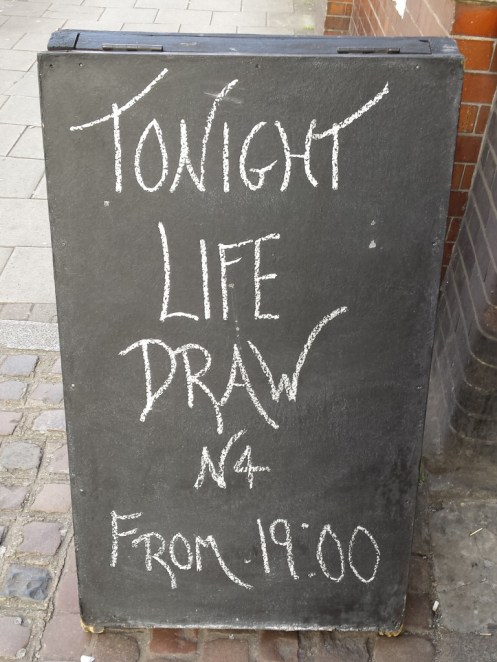 TONIGHT
LIFE
DRAW
N4
FROM 19:00